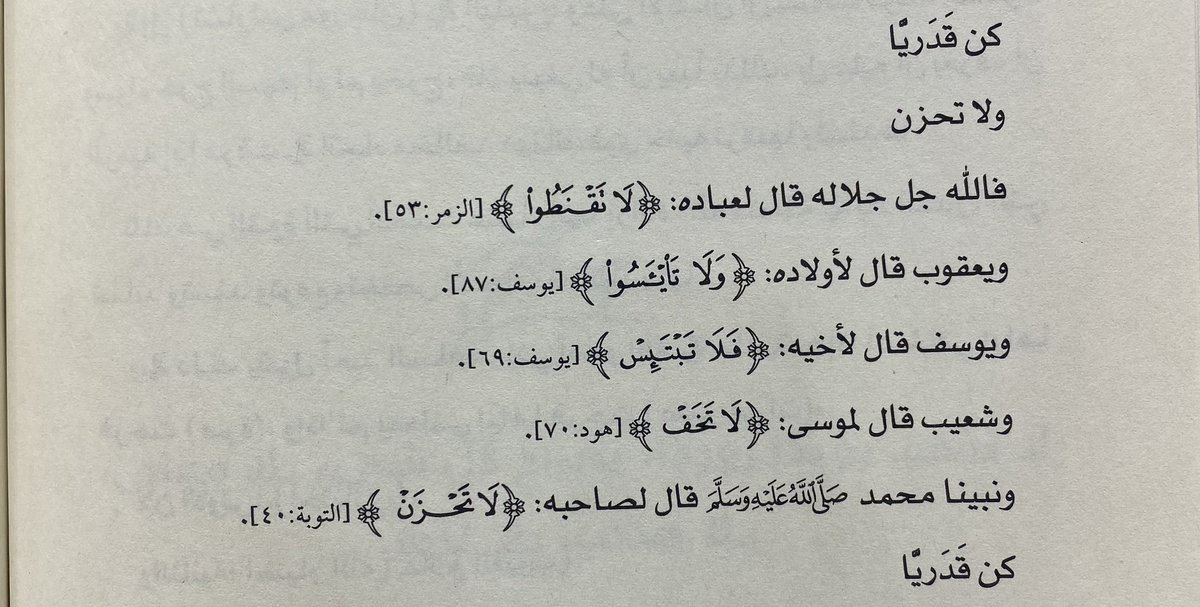 كن قَدَريًّا
ولا تحزن
فالله جل جلاله قال لعباده: ﴿لَا تَقْنَطُوا۟﴾ [الزمر:٥٣].
ويعقوب قال لأولاده: ﴿وَلَا تَا۟يْـَٔسُوا۟﴾ [يوسف:٨٧].
ويوسف قال لأخيه: ﴿فَلَا تَبْتَئِسْ﴾ [يوسف:٦٩].
وشعيب قال لموسى: ﴿لَا تَخَفْ﴾ [هود:٧٠].
ونبينا محمد صَلَّىٰللَّهُعَلَيْهِوَسَلَّمَ قال لصاحبه: ﴿لَا تَحْزَنْ﴾ [التوبة:٤٠].
كن قَدَريًّا